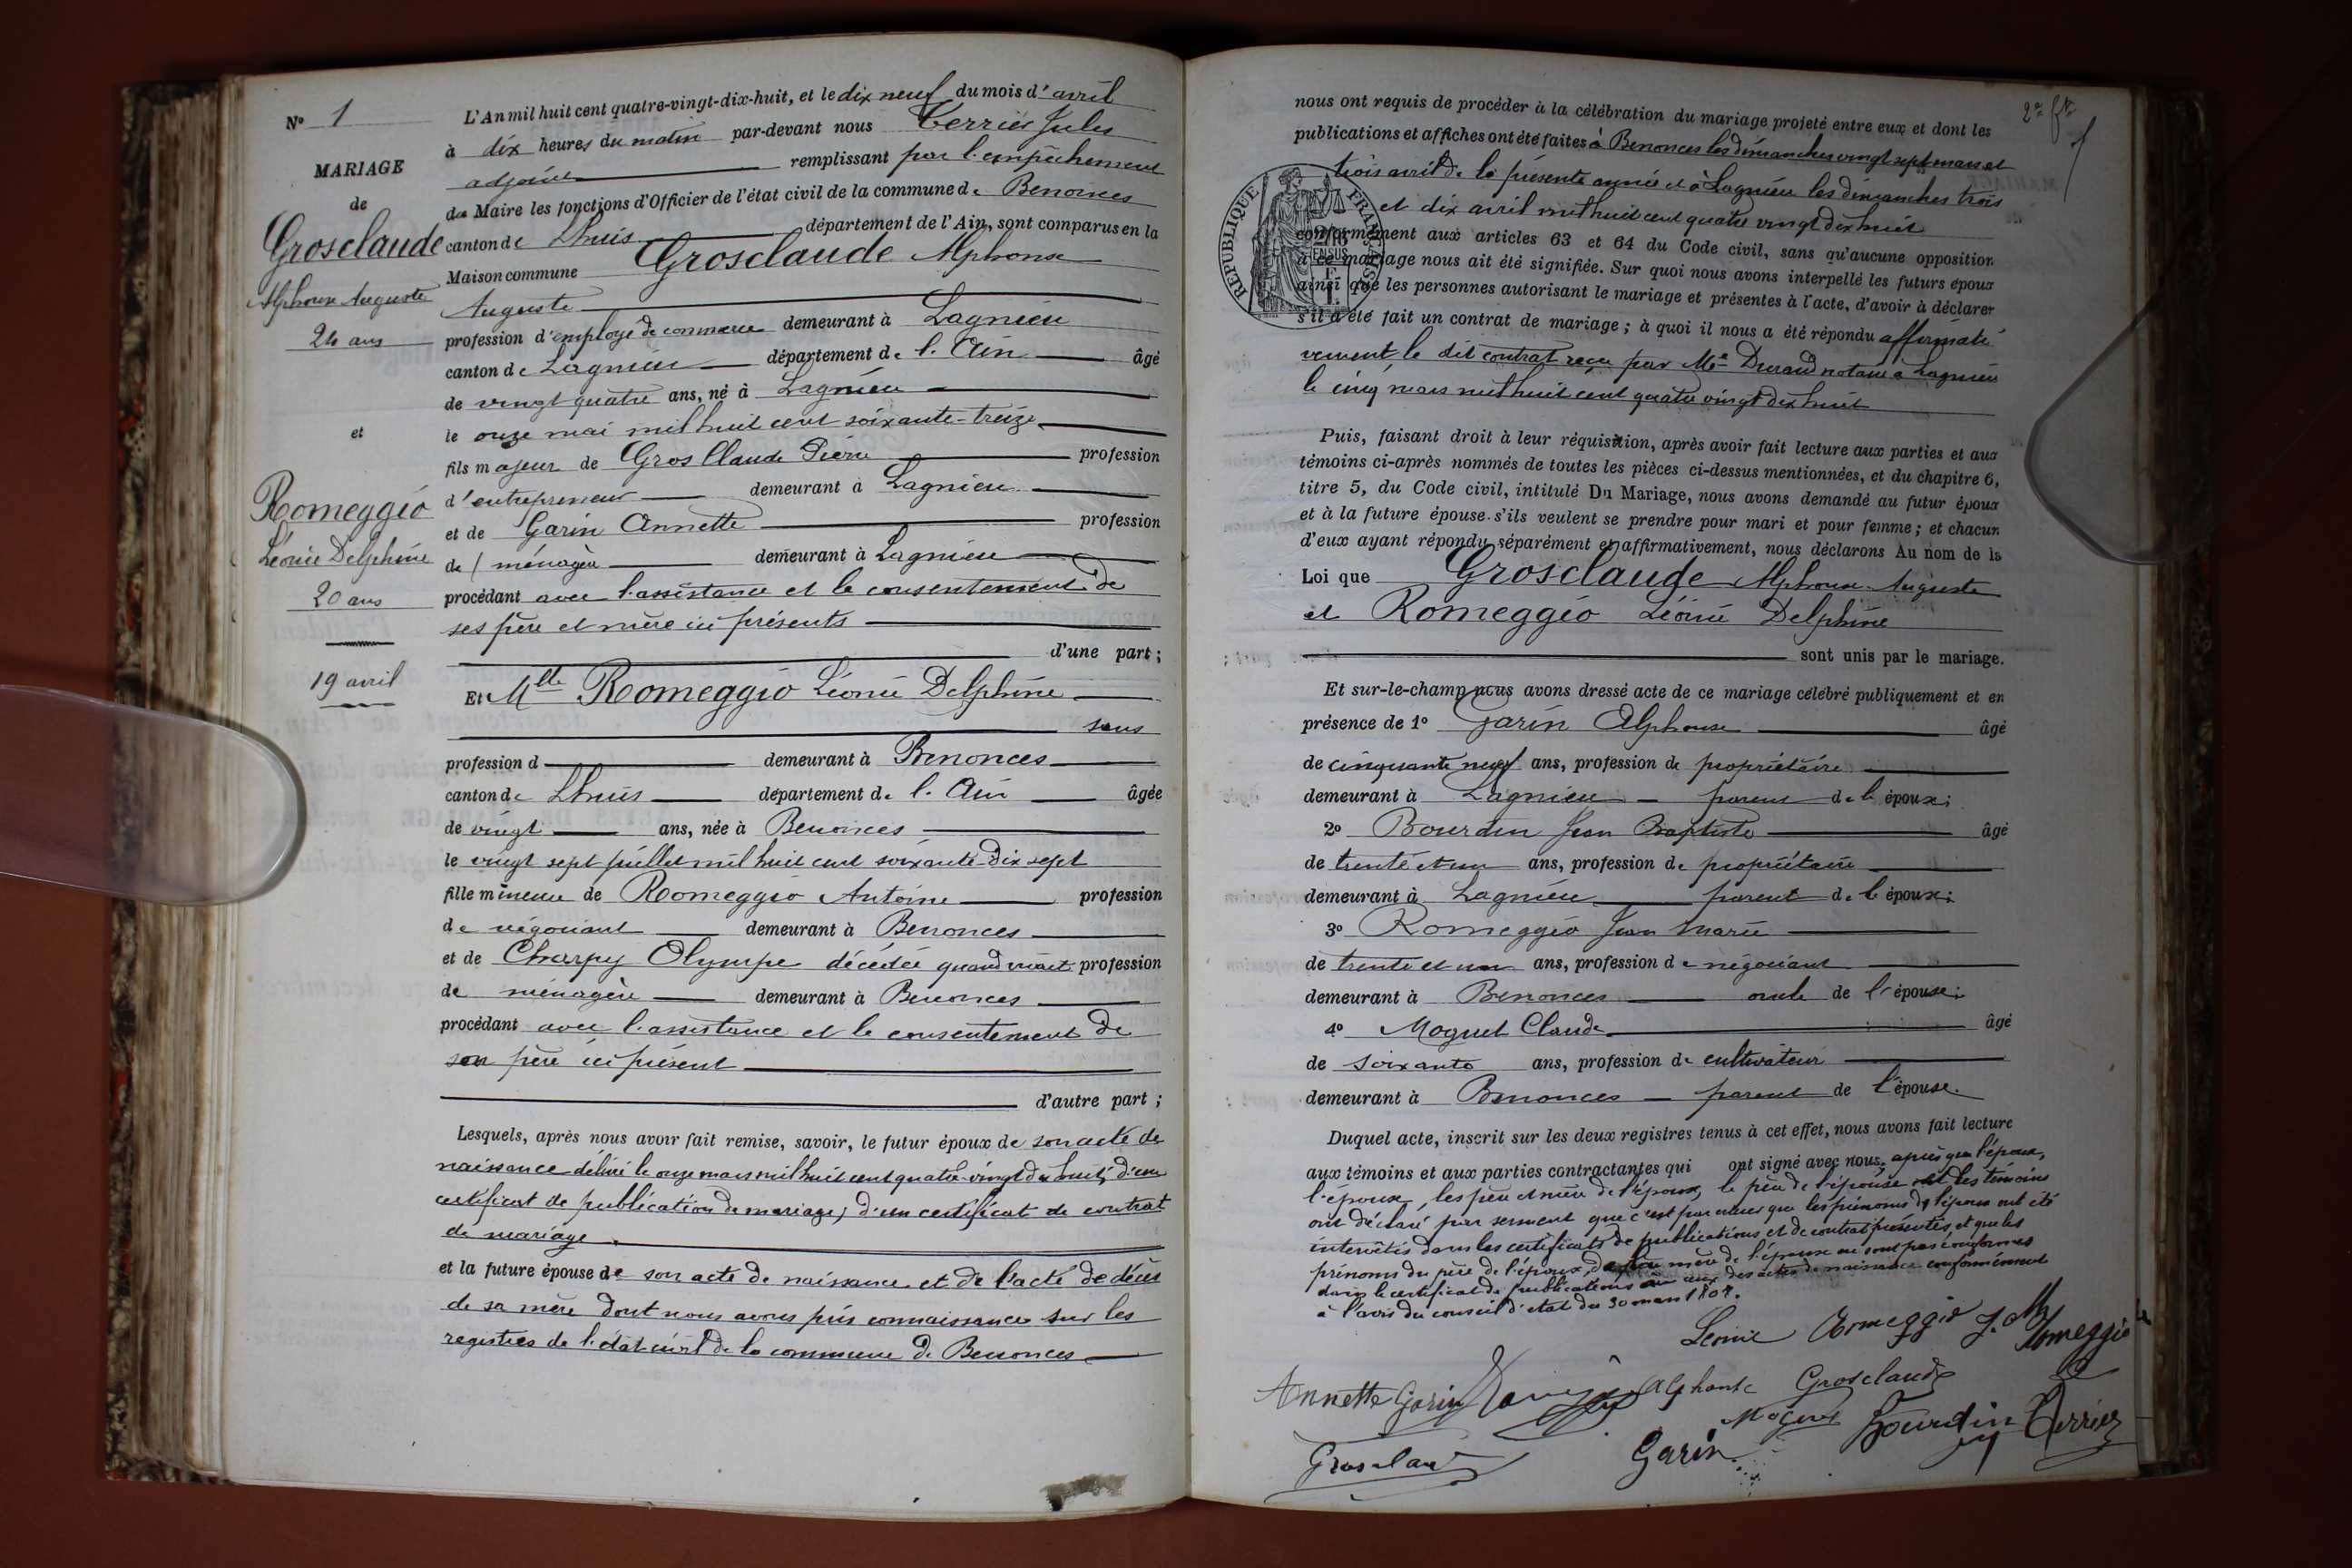 N° 1
MARIAGE
de
Grosclaude
Alphonse Auguste
24 ans
et
Romeggio
Léonie Delphine
20 ans
19 avril
L'An mil huit cent quatre-vingt-dix-huit, et le dix neuf du mois d'avril
à dix heures du matin par-devant nous Terrier Jules
adjoint remplissant par l'empêchement
du Maire les fonctions d'Officier de l'état civil de la commune de Benonces
canton de Lhuis département de l'Ain, sont comparus en la
Maison commune Grosclaude Alphonse
Auguste
profession d'employé de commerce demeurant à Lagnieu
canton de Lagnieu département de l'Ain âgé
de vingt quatre ans, né à Lagnieu
le onze mai mil huit cent soixante-treize
fils majeur de Gros Claude Pierre profession
d'entrepreneur demeurant à Lagnieu
et de Garin Annette profession
de ménagère demeurant à Lagnieu
procédant avec l'assistance et le consentement de
ses père et mère ici présents
d'une part;
Et Mlle Romeggio Léonie Delphine
sans
profession d demeurant à Benonces
canton de Lhuis département de l'Ain âgée
de vingt ans, née à Benonces
le vingt sept juillet mil huit cent soixante-dix sept
fille mineure de Romeggio Antoine profession
de négociant demeurant à Benonces
et de Charpy Olympe décédée quand vivait profession
de ménagère demeurant à Benonces
procédant avec l'assistance et le consentement de
son père ici présent
d'autre part;
Lesquels, après nous avoir fait remise, savoir, le futur époux de son acte de
naissance délivré le onze mars mil huit cent quatre-vingt dix huit; d'un
certificat de publication de mariage; d'un certificat de contrat
de mariage.
et la future épouse de son acte de naissance et de l'acte de décès
de sa mère dont nous avons pris connaissance sur les
registres de l'état civil de la commune de Benonces
nous ont requis de procéder à la célébration du mariage projeté entre eux et dont les
publications et affiches ont été faites à Benonces les dimanches vingt sept mars et
trois avril de la présente année et à Lagnieu les dimanches trois
et dix avril mil huit cent quatre vingt dix huit
conformément aux articles 63 et 64 du Code civil, sans qu'aucune opposition
à ce mariage nous ait été signifiée. Sur quoi nous avons interpellé les futurs époux
ainsi que les personnes autorisant le mariage et présentes à l'acte, d'avoir à déclarer
s'il a été fait un contrat de mariage; à quoi il nous a été répondu affirmati
vement, le dit contrat reçu par Me Durand notaire à Lagnieu
le cinq mars mil huit cent quatre vingt dix huit
REPUBLIQUE FRANÇAISE
Puis, faisant droit à leur réquisition, après avoir fait lecture aux parties et aux
témoins ci-après nommés de toutes les pièces ci-dessus mentionnées, et du chapitre 6,
titre 5, du Code civil, intitulé Du Mariage, nous avons demandé au futur époux
et à la future épouse s'ils veulent se prendre pour mari et pour femme; et chacun
d'eux ayant répondu séparément et affirmativement, nous déclarons Au nom de la
Loi que Grosclaude Alphonse Auguste
et Romeggio Léonie Delphine
sont unis par le mariage.
Et sur-le-champ nous avons dressé acte de ce mariage célébré publiquement et en
présence de 1° Garin Alphonse âgé
de cinquante neuf ans, profession de propriétaire
demeurant à Lagnieu parent de l'époux;
2° Bourdin Jean Baptiste âgé
de trente et un ans, profession de propriétaire
demeurant à Lagnieu parent de l'époux;
3° Romeggio Jean Marie
de trente et un ans, profession de négociant
demeurant à Benonces oncle de l'épouse;
4° Moguet Claude âgé
de soixante ans, profession de cultivateur
demeurant à Benonces parent de l'épouse.
Duquel acte, inscrit sur les deux registres tenus à cet effet, nous avons fait lecture
aux témoins et aux parties contractantes qui ont signé avec nous. après que l'époux,
l'épouse, les père et mère de l'époux, le père de l'épouse et les témoins
ont déclaré par serment que c'est par erreur que les prénoms de l'époux ont été
intervertis dans les certificats de publications et de contrat présentés, et que les
prénoms du père de l'époux, de la mère de l'épouse ne sont pas conformes
dans le certificat de publications à ceux des actes de naissance conformément
à l'avis du conseil d'état du 30 mars 1808.
Léonie Romeggio J. M. Romeggio
Annette Garin Alphonse Grosclaude
Moguet Bourdin Terrier
Grosclaude Garin